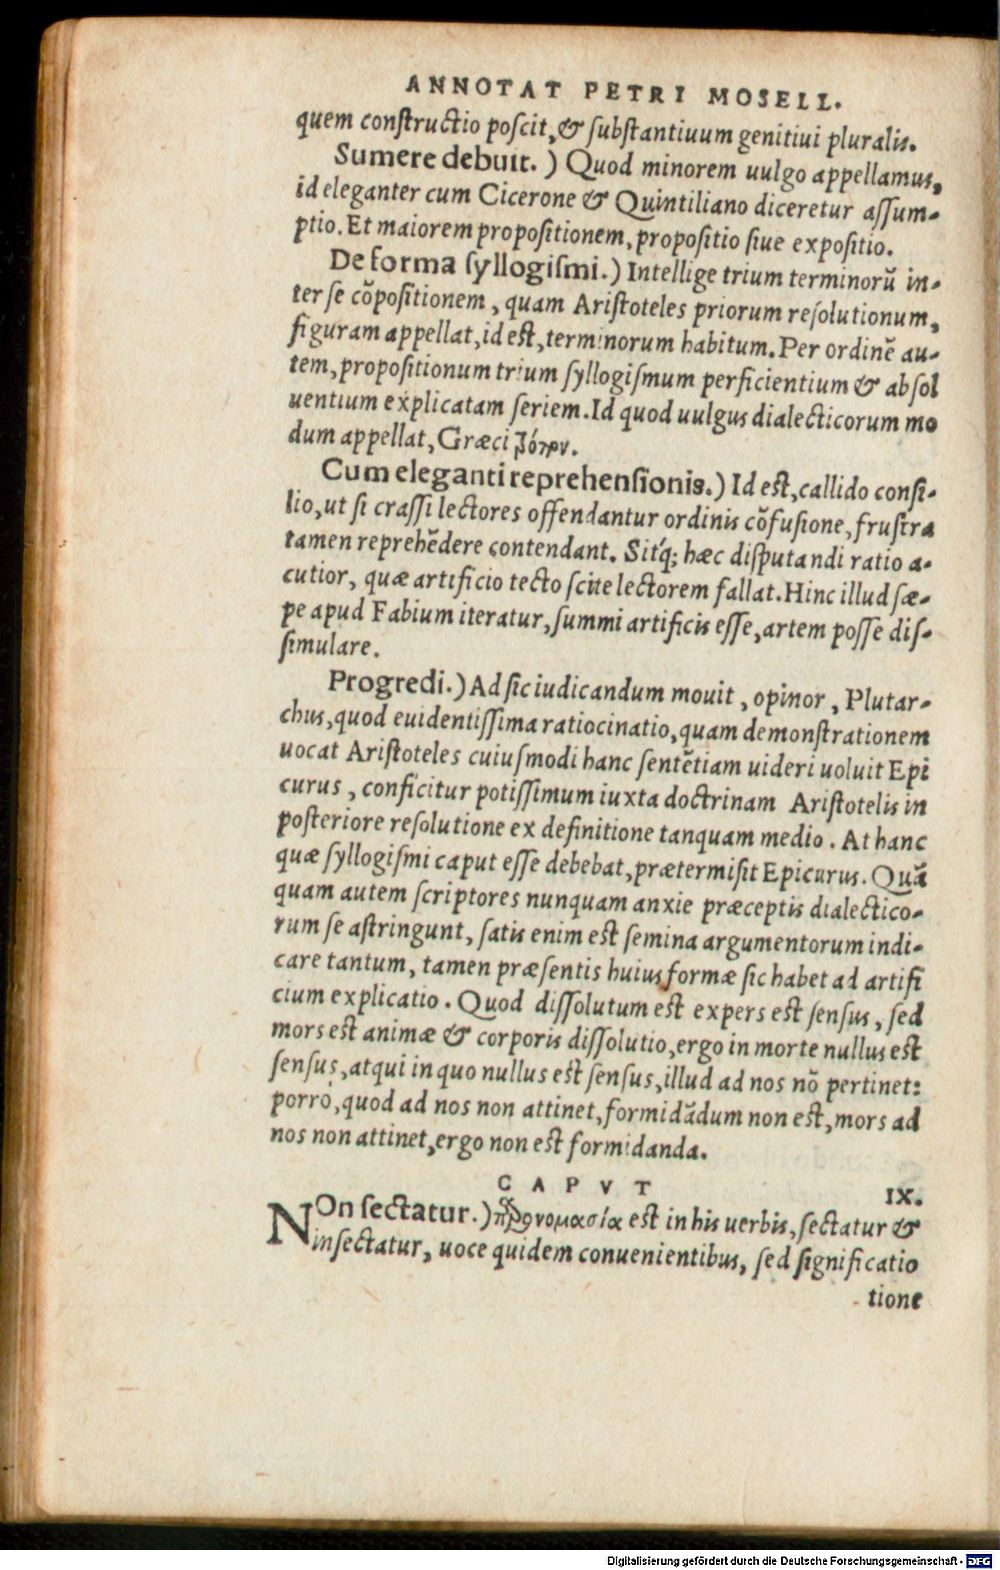 ANNOTAT PETRI MOSELL.
quem constructio poscit, & substantiuum genitiui pluralis.
Sumere debuit. ) Quod minorem uulgo appellamus,
id eleganter cum Cicerone & Quintiliano diceretur assum-
ptio. Et maiorem propositionem, propositio siue expositio.
De forma syllogismi. ) Intellige trium terminorũ in-
ter se cõpositionem, quam Aristoteles priorum resolutionum,
figuram appellat, id est, terminorum habitum. Per ordinẽ au-
tem, propositionum trium syllogismum perficientium & absol
uentium explicatam seriem. Id quod uulgus dialecticorum mo
dum appellat, Græci
Cum eleganti reprehensionis. ) Id est, callido consi-
lio, ut si crassi lectores offendantur ordinis cõfusione, frustra
tamen reprehẽdere contendant. Sitq; hæc disputandi ratio a-
cutior, quæ artificio tecto scite lectorem fallat. Hinc illud sæ-
pe apud Fabium iteratur, summi artificis esse, artem posse dis-
simulare.
Progredi. ) Ad sic iudicandum mouit, opinor, Plutar-
chus, quod euidentissima ratiocinatio, quam demonstrationem
uocat Aristoteles cuiusmodi hanc sentẽtiam uideri uoluit Epi
curus, conficitur potissimum iuxta doctrinam Aristotelis in
posteriore resolutione ex definitione tanquam medio. At hanc
quæ syllogismi caput esse debebat, prætermisit Epicurus. Quã
quam autem scriptores nunquam anxie præceptis dialectico-
rum se astringunt, satis enim est semina argumentorum indi-
care tantum, tamen præsentis huius formæ sic habet ad artifi
cium explicatio. Quod dissolutum est expers est sensus, sed
mors est animæ & corporis dissolutio, ergo in morte nullus est
sensus, atqui in quo nullus est sensus, illud ad nos nõ pertinet:
porrò, quod ad nos non attinet, formidãdum non est, mors ad
nos non attinet, ergo non est formidanda.
CAPVT IX.
NOn sectatur. ) προνομασία est in his uerbis, sectatur &
insectatur, uoce quidem conuenientibus, sed significatio
tione
Digitalisierung gefördert durch die Deutsche Forschungsgemeinschaft - DFG